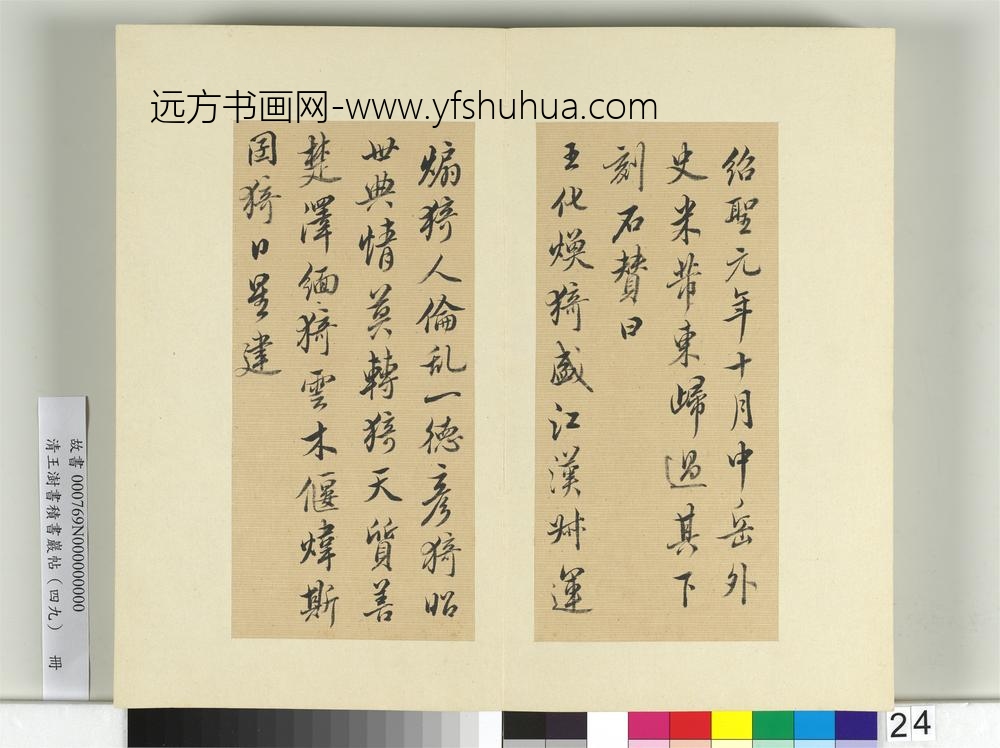 远方书画网-www.yfshuhua.com
绍聖元年十月中岳外
史米芾東歸過其下
刻石赞曰
王化煥猗盛江漢娍運
煽猗人倫乱一德彦猗昭
世典情莫轉猗天質善
楚澤緬猗雲木偃煒斯
圖猗日星建
故書 000769N000000000
清王澍書積書巖帖（四九） 冊
24